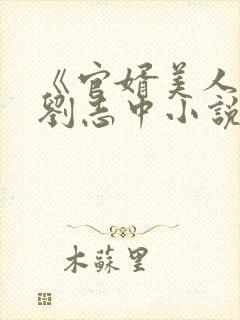 《官婿美人
劉志中小說
木蘇里